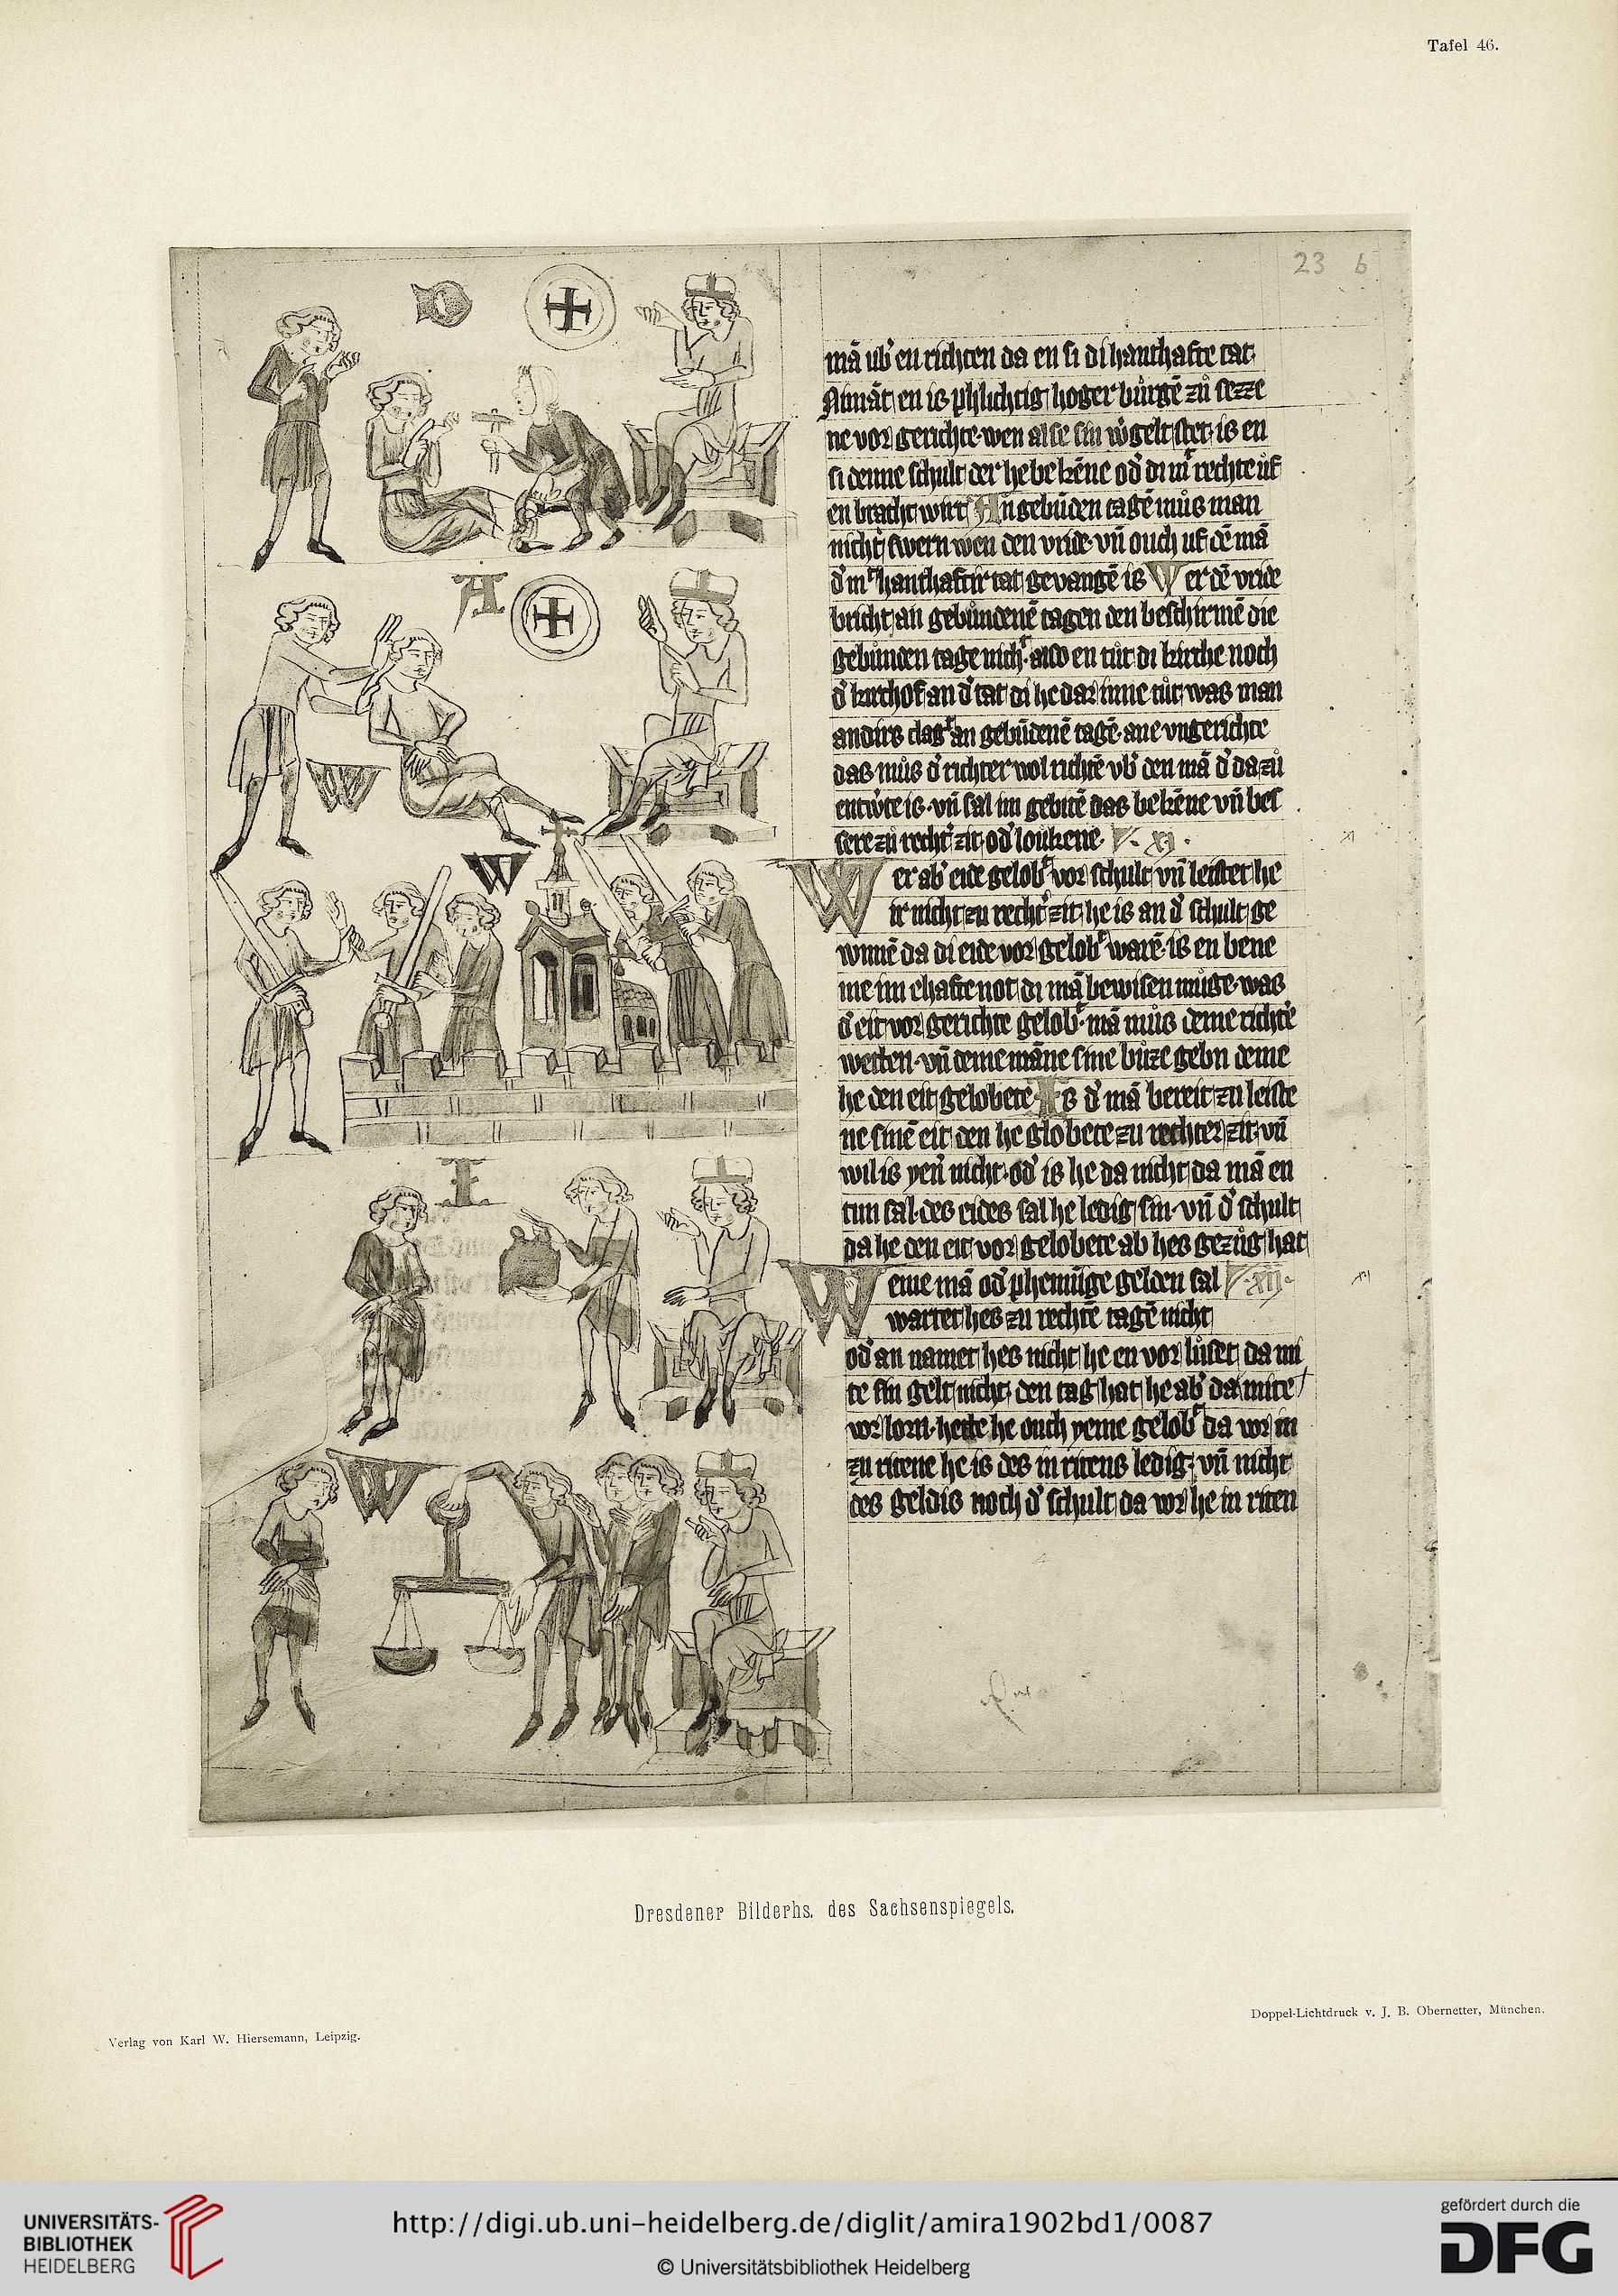 Tafel 46.
23 b
mā ub' en richten da en si di hanthafte tat
Nimāt en is phlichtig hoger bůrgē zů sezze
ne vor gerichte wen alse sin w'gelt stet is en
si denne schult der he bekēne od' di m' rechte ůf
en bracht wirt An gebůden tagē můs man
nicht swern wen den vride vn̄ ouch uf dē mā
d' m' hanthaftir tat gevangē is Wer dē vride
bricht an gebůndenē tagen den beschirmē die
gebůnden tage nicht also en tůt di kirche noch
d' kirchof an d' tat di he dar inne tůt was man
andirs clagt an gebůdenē tagē ane vngerichte
das můs d' richter wol richtē vb' den mā d' da zů
entw'te is vn̄ sal im gebitē das bekēne vn̄ bes
sere zů recht' zit od' loukene xj
Wer ab' eide gelobt vor schult vn̄ leistet he
ir nicht zu recht' zit he is an d' schult ge
wunē da di eide vor gelobt warē is en bene
me im ehafte not di mā bewisen můge was
d' eit vor gerichte gelobt mā můs deme richt'e
wetten vn̄ deme māne sine bůze gebn deme
he den eit gelobete Is d' mā bereit zu leiste
ne sinē eit den he globete zu rechter zit vn̄
wil is yen' nicht od' is he da nicht da mā en
tun sal des eides sal he ledig sin vn̄ d' schult
da he den eit vor gelobete ab hes gezůg hat
Weme mā od' phennīge gelden sal xij
wartet hes zu rechtē tagē nicht
od' an namet hes nicht he en vor lůset da mi
te sin gelt nicht den tag hat he ab' da mite
vor lorn hette he ouch yeme gelobt da vor in
zu ritene he is des in ritens ledig vn̄ nicht
des geldis noch d' schult da vor he in riten
A
W
W
I
W
Dresdener Bilderhs. des Sachsenspiegels.
Verlag von Karl W. Hiersemann, Leipzig.
Doppel-Lichtdruck v. J. B. Obernetter, München.
UNIVERSITÄTS-
BIBLIOTHEK
HEIDELBERG
http://digi.ub.uni-heidelberg.de/diglit/amira1902bd1/0087
© Universitätsbibliothek Heidelberg
gefördert durch die
DFG